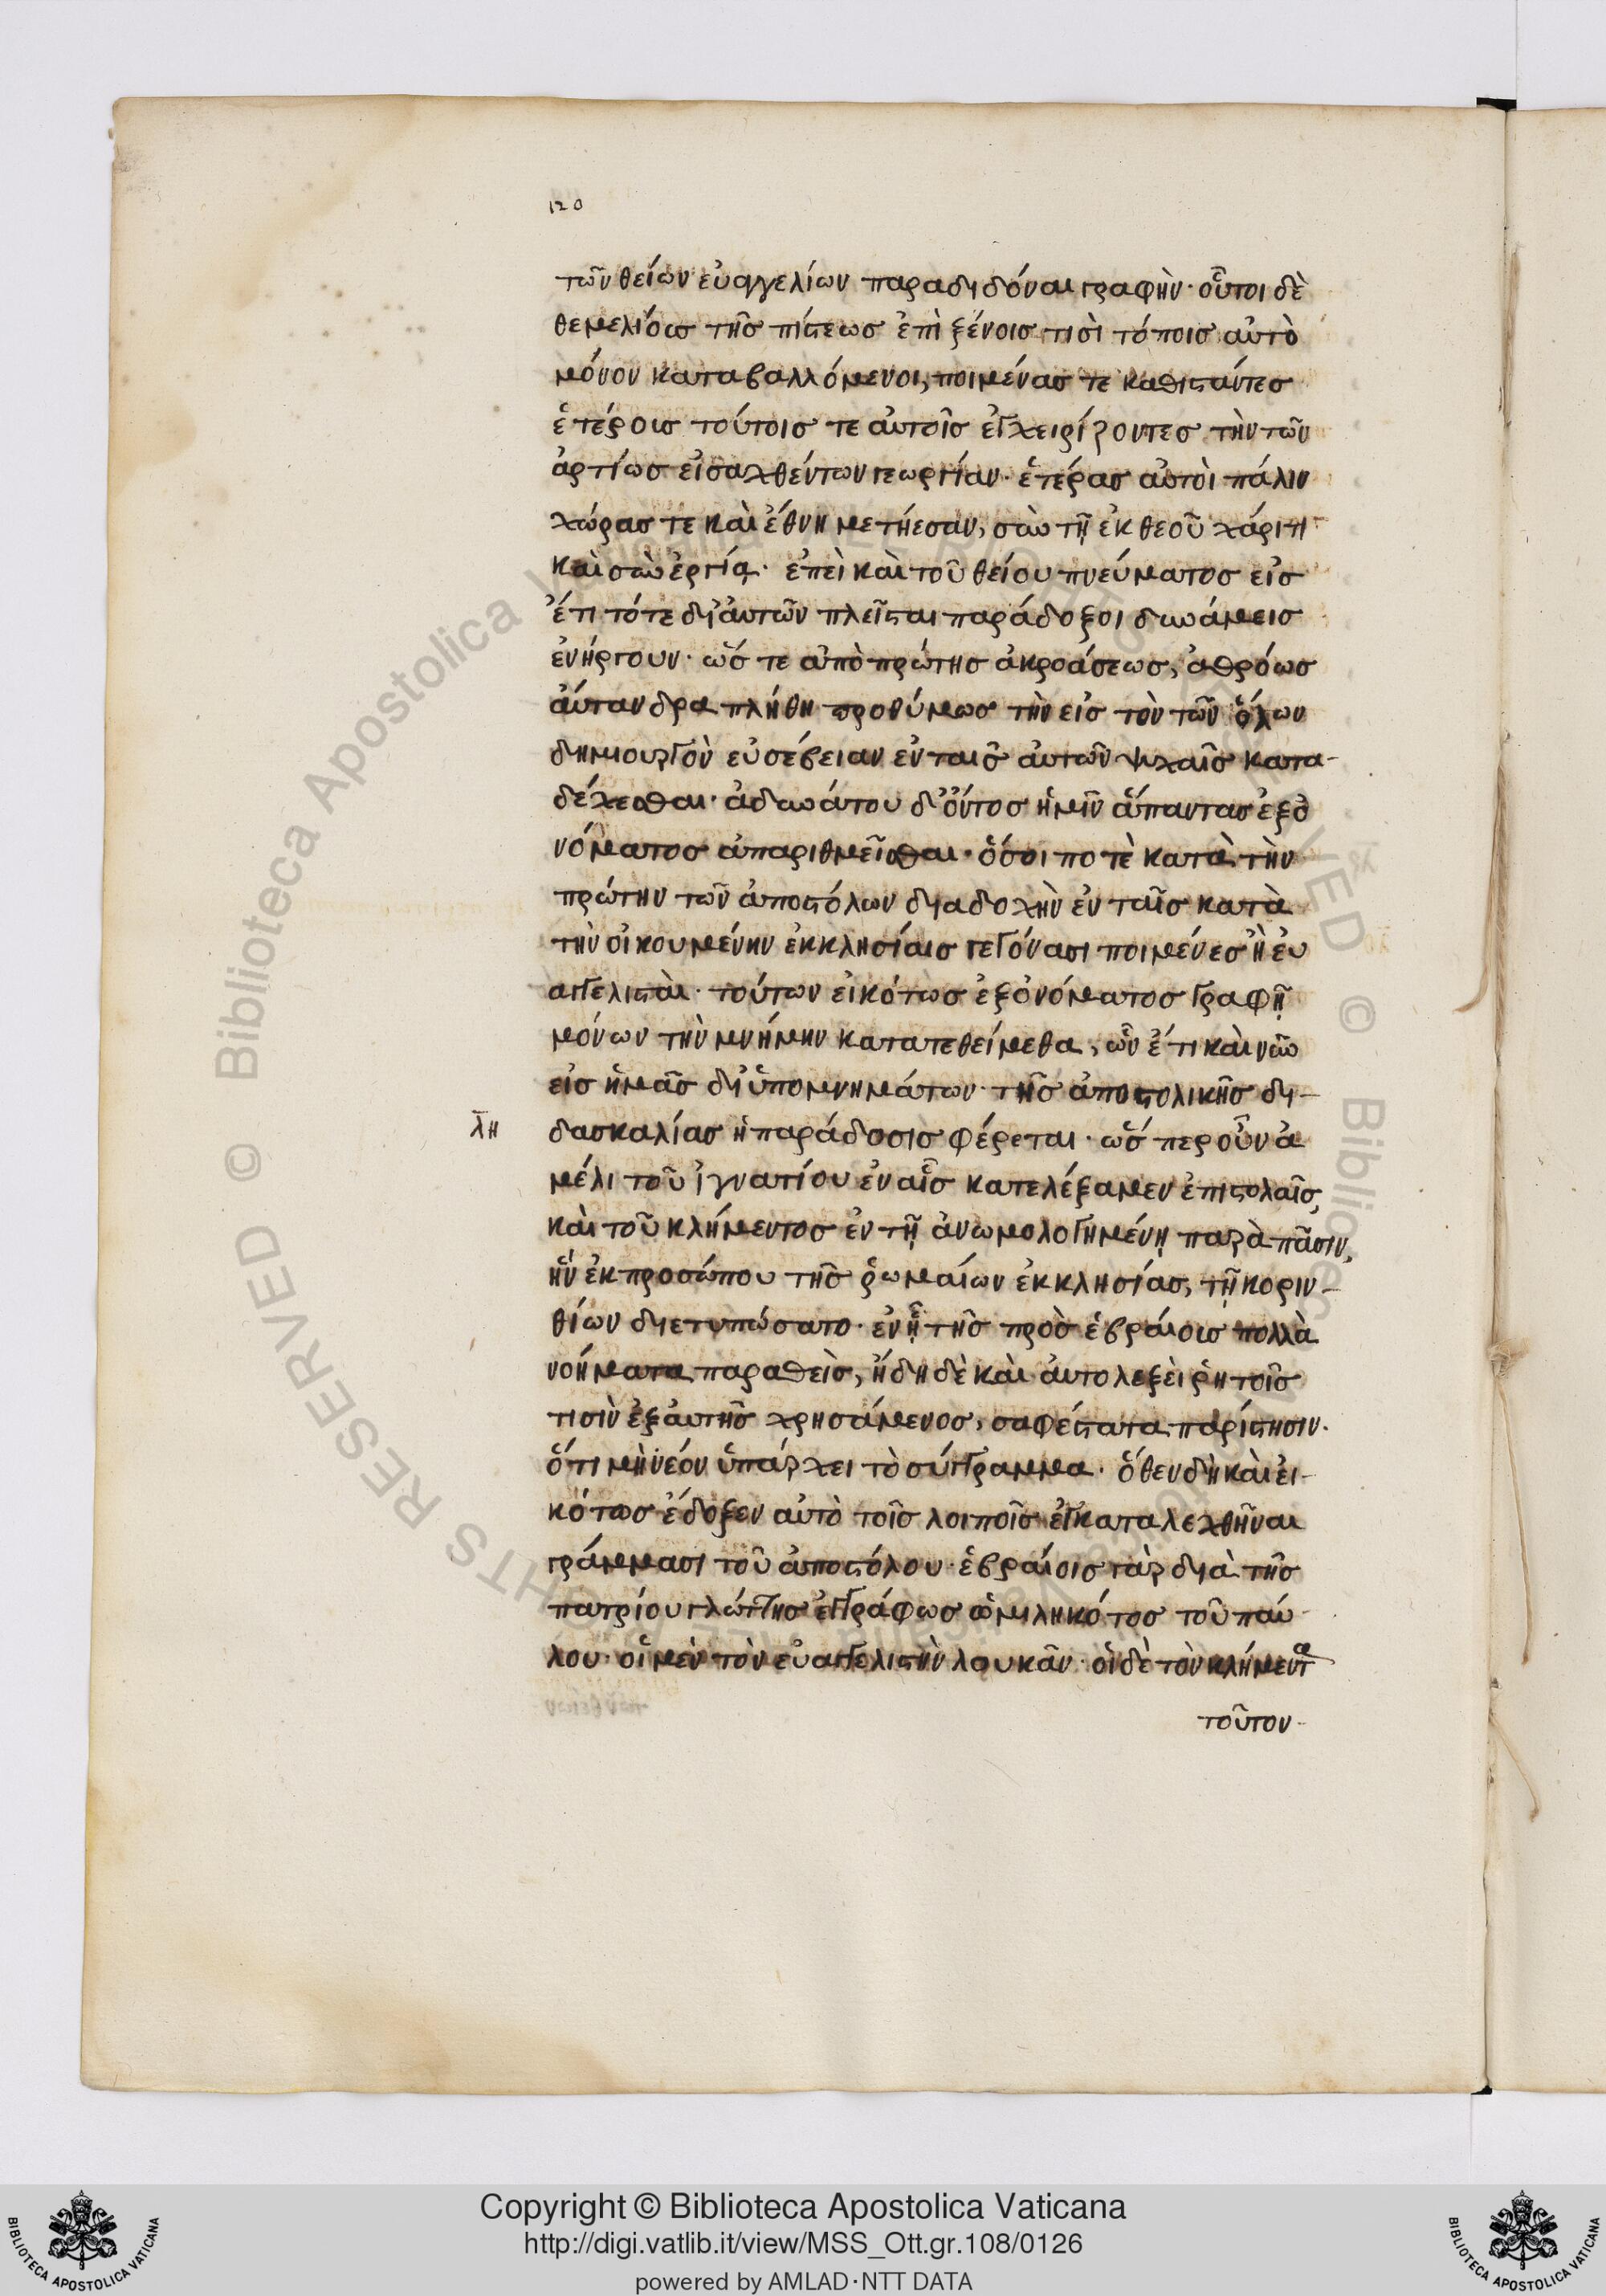 120
τῶν θείων εὐαγγελίων παραδιδόναι γραφὴν· οὗτοι δὲ
θεμελίους τῆς πίστεως ἐπὶ ξένοις τισὶ τόποις αὐτὸ
μόνον καταβαλλόμενοι, ποιμένας τε καθιστάντες
ἑτέροις τούτοις τε αὐτοῖς ἐγχειρίζοντες τὴν τῶν
ἀρτίως εἰσαχθέντων γεωργίαν· ἑτέρας αὐτοὶ πάλιν
χώρας τε καὶ ἔθνη μετήεσαν, σὺν τῇ ἐκ θεοῦ χάριτι
καὶ συνεργίᾳ· ἐπεὶ καὶ τοῦ θείου πνεύματος εἰσ
έτι τότε δι' αὐτῶν πλεῖσται παράδοξοι δυνάμεις
ἐνήργουν· ὥς τε ἀπὸ πρώτης ἀκροάσεως, ἀθρόως
αὔτανδρα πλήθη προθύμως τὴν εἰς τὸν τῶν ὅλων
δημιουργὸν εὐσέβειαν ἐν ταῖς αὐτῶν ψυχαῖς κατα-
δέχεσθαι· ἀδυνάτου δ' ὄντος ἡμῖν ἅπαντας ἐξ ὀ
νόματος ἀπαριθμεῖσθαι· ὅσοι ποτὲ κατὰ τὴν
πρώτην τῶν ἀποστόλων διαδοχὴν ἐν ταῖς κατὰ
τὴν οἰκουμένην ἐκκλησίαις γεγόνασι ποιμένες ἢ εὐ
αγγελισταὶ· τούτων εἰκότως ἐξ ὀνόματος γραφῇ
μόνων τὴν μνήμην κατατεθείμεθα, ὧν ἔτι καὶ νῦν
εἰς ἡμᾶς δι' ὑπομνημάτων τῆς ἀποστολικῆς δι-
λη δασκαλίας ἡ παράδοσις φέρεται· ὥς περ οὖν ἀ
μέλι τοῦ ἰγνατίου ἐν αἷς κατελέξαμεν ἐπιστολαῖς,
καὶ τοῦ κλήμεντος ἐν τῇ ἀνωμολογημένῃ παρὰ πᾶσιν,
ἣν ἐκ προσώπου τῆς ῥωμαίων ἐκκλησίας, τῇ κοριν-
θίων διετυπώσατο· ἐν ᾗ τῆς πρὸς ἑβραίους πολλὰ
νοήματα παραθεὶς, ἤδη δὲ καὶ αὐτολεξεὶ ῥητοῖς
τισὶν ἐξ αὐτῆς χρησάμενος, σαφέστατα παρίστησιν·
ὅτι μὴ νέον ὑπάρχει τὸ σύγγραμμα· ὅθεν δὴ καὶ εἰ-
κότως ἔδοξεν αὐτὸ τοῖς λοιποῖς ἐγκαταλεχθῆναι
γράμμασι τοῦ ἀποστόλου· ἑβραίοις γὰρ διὰ τῆς
πατρίου γλώττης ἐγγράφως ὡμιληκότος τοῦ παύ
λου· οἱ μὲν τὸν εὐαγγελιστὴν λουκᾶν· οἱ δὲ τὸν κλήμεντα
τοῦτον
Copyright © Biblioteca Apostolica Vaticana
http://digi.vatlib.it/view/MSS_Ott.gr.108/0126
powered by AMLAD·NTT DATA